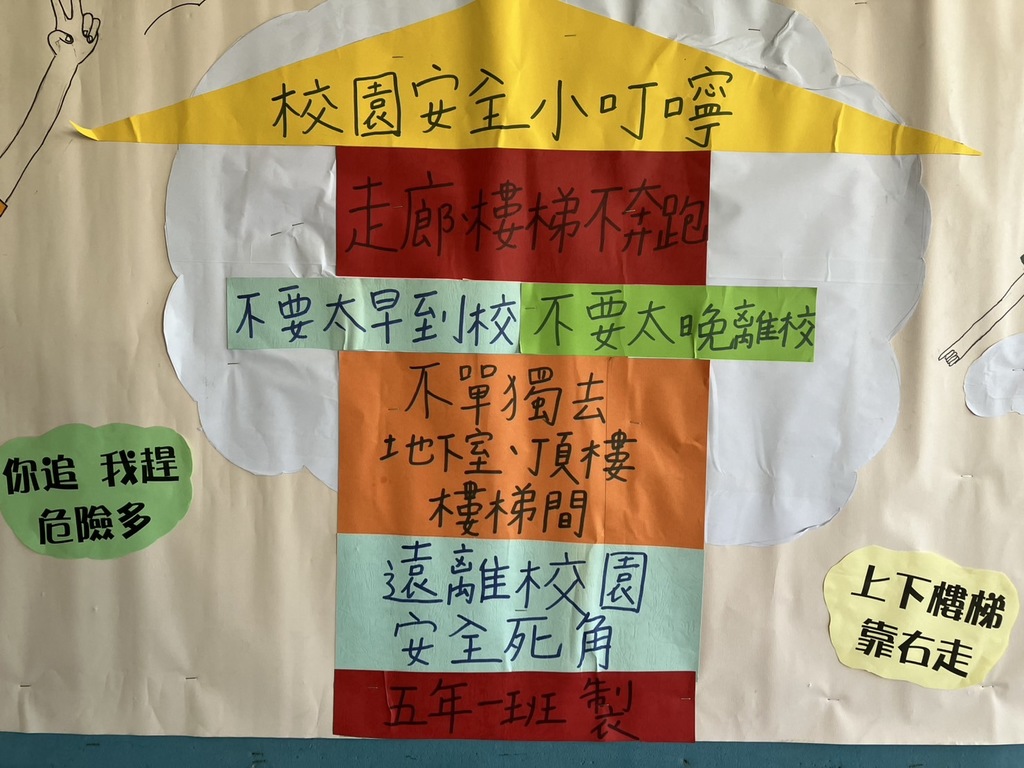 校園安全小叮嚀
走廊、樓梯不奔跑
不要太早到校
不要太晚離校
不單獨去
地下室、頂樓
樓梯間
遠離校園
安全死角
五年一班製
你追 我趕
危險多
上下樓梯
靠右走